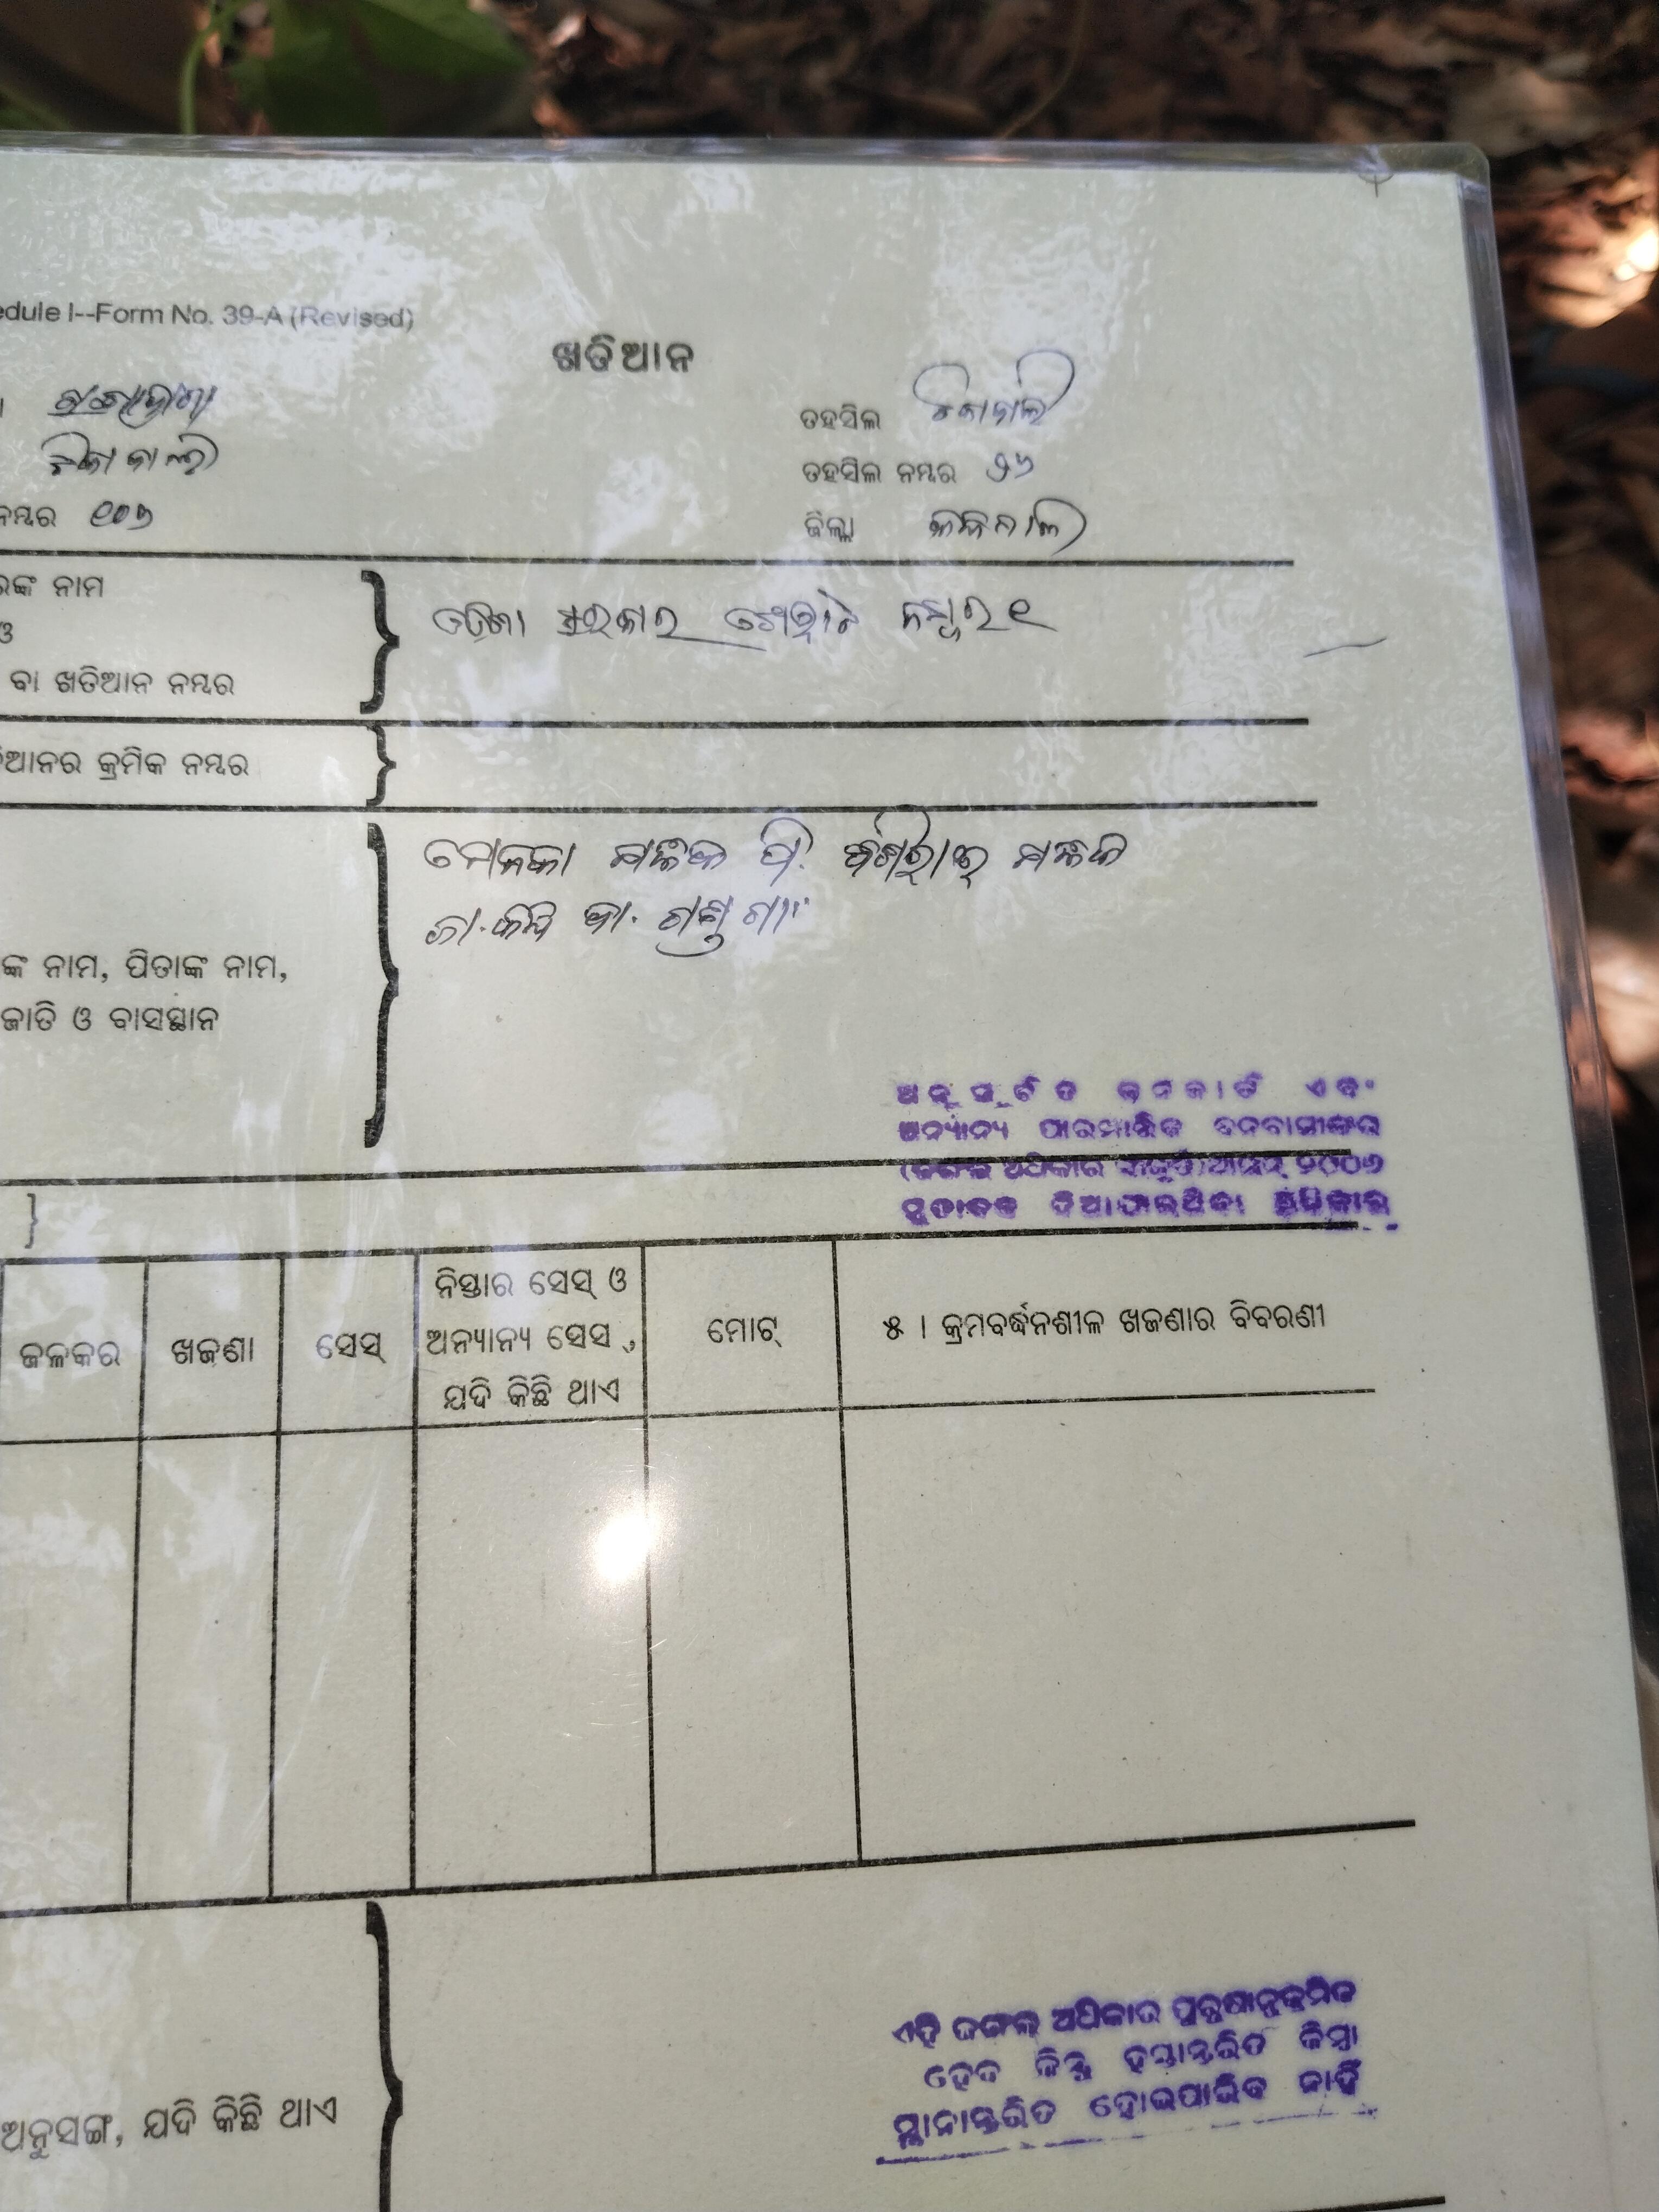 edule I--Form No. 39-A (Revised)
ଖତିଆନ
ତହସିଲ ଚିକାବାଲି
ଚିକାବାଲି
ତହସିଲ ନମ୍ବର ୬୬
ନମ୍ବର ୧୦୭
ଜିଲ୍ଲା କନ୍ଧମାଳ
ରଙ୍କ ନାମ
ଓ
ବା ଖତିଆନ ନମ୍ବର
ଓଡ଼ିଶା ସରକାର ଖେୱାଟ ନମ୍ବର ୧
ତିଆନର କ୍ରମିକ ନମ୍ବର
ମେନକା ମଲ୍ଲିକ ପି. ମଲ୍ଲିକ
ଜା. କନ୍ଧ ବା. ଗାଁ
ଙ୍କ ନାମ, ପିତାଙ୍କ ନାମ,
ଜାତି ଓ ବାସସ୍ଥାନ
ଅନୁସୂଚିତ ଜନଜାତି ଏବଂ
ଅନ୍ୟାନ୍ୟ ପାରମ୍ପାରିକ ବନବାସୀଙ୍କର
(ଜଙ୍ଗଲ ଅଧିକାର ସ୍ୱୀକୃତି) ଆଇନ୍ ୨୦୦୬
ମୁତାବକ ଦିଆଯାଇଥିବା ଅଧିକାର
ଜଳକର
ଖଜଣା
ସେସ୍
ନିସ୍ତାର ସେସ୍ ଓ
ଅନ୍ୟାନ୍ୟ ସେସ୍,
ଯଦି କିଛି ଥାଏ
ମୋଟ୍
୫ । କ୍ରମବର୍ଦ୍ଧନଶୀଳ ଖଜଣାର ବିବରଣୀ
ଏହି ଜଙ୍ଗଲ ଅଧିକାର ପୁରୁଷାନୁକ୍ରମିକ
ହେବ କିନ୍ତୁ ହସ୍ତାନ୍ତରିତ କିମ୍ବା
ସ୍ଥାନାନ୍ତରିତ ହୋଇପାରିବ ନାହିଁ
ଅନୁସଙ୍ଗ, ଯଦି କିଛି ଥାଏ